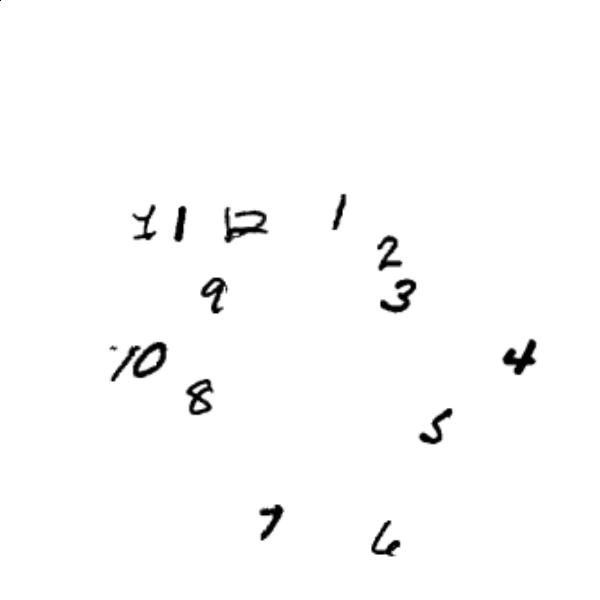 11 12 1
2
9 3
10 4
8
5
7 6